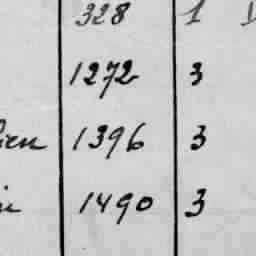 328 1
1272 3
1396 3
1490 3